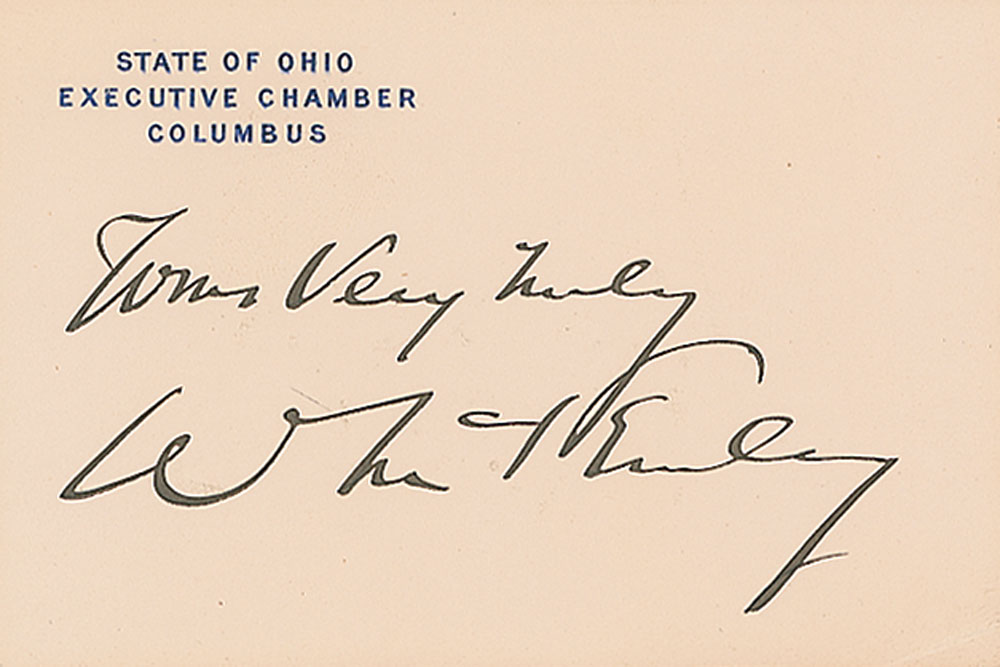 STATE OF OHIO
EXECUTIVE CHAMBER
COLUMBUS
Yours Very truly
W McKinley